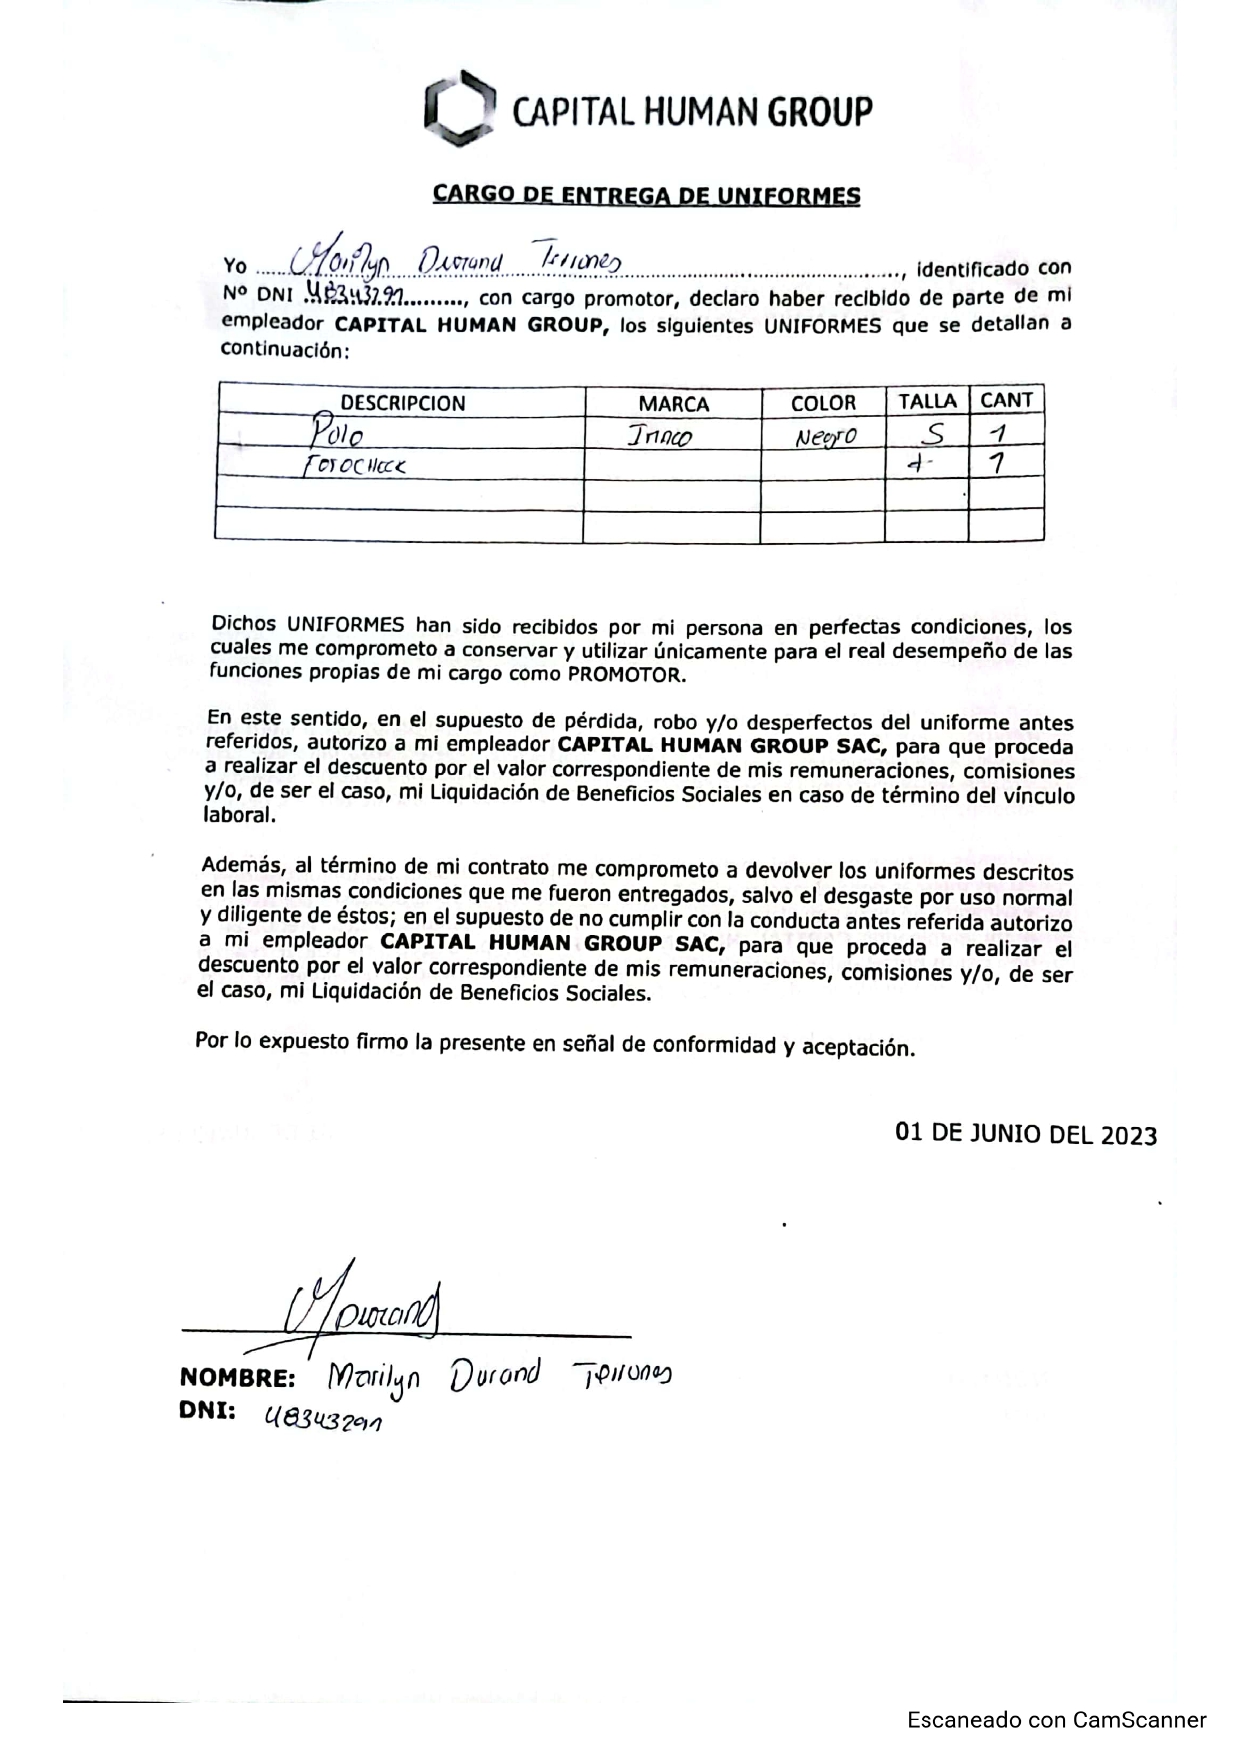 CAPITAL HUMAN GROUP
CARGO DE ENTREGA DE UNIFORMES
Yo ......Marilyn Durand Terrones............................................., identificado con
Nº DNI .48343291........., con cargo promotor, declaro haber recibido de parte de mi
empleador CAPITAL HUMAN GROUP, los siguientes UNIFORMES que se detallan a
continuación:
DESCRIPCION MARCA COLOR TALLA CANT
Polo Negro S 1
FOTOCHECK 1
Dichos UNIFORMES han sido recibidos por mi persona en perfectas condiciones, los
cuales me comprometo a conservar y utilizar únicamente para el real desempeño de las
funciones propias de mi cargo como PROMOTOR.
En este sentido, en el supuesto de pérdida, robo y/o desperfectos del uniforme antes
referidos, autorizo a mi empleador CAPITAL HUMAN GROUP SAC, para que proceda
a realizar el descuento por el valor correspondiente de mis remuneraciones, comisiones
y/o, de ser el caso, mi Liquidación de Beneficios Sociales en caso de término del vínculo
laboral.
Además, al término de mi contrato me comprometo a devolver los uniformes descritos
en las mismas condiciones que me fueron entregados, salvo el desgaste por uso normal
y diligente de éstos; en el supuesto de no cumplir con la conducta antes referida autorizo
a mi empleador CAPITAL HUMAN GROUP SAC, para que proceda a realizar el
descuento por el valor correspondiente de mis remuneraciones, comisiones y/o, de ser
el caso, mi Liquidación de Beneficios Sociales.
Por lo expuesto firmo la presente en señal de conformidad y aceptación.
01 DE JUNIO DEL 2023
MDurand
NOMBRE: Marilyn Durand Terrones
DNI: 48343291
Escaneado con CamScanner